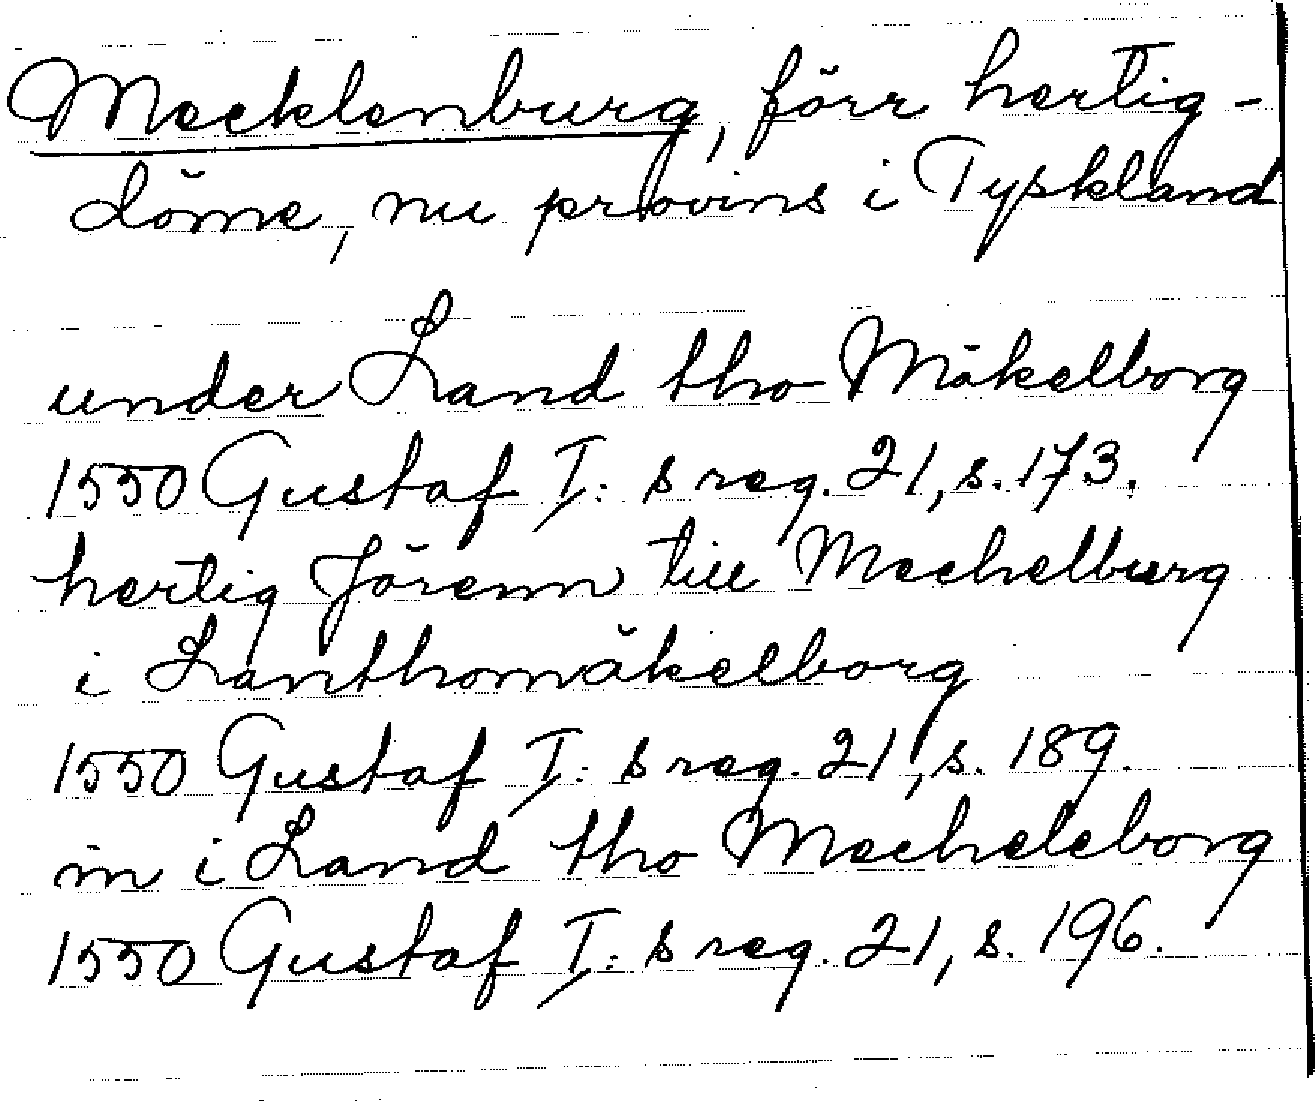 Mecklenburg, förr hertig-
döme, nu provins i Tyskland
under Land tho Mäkelborg
1550 Gustaf I: s reg. 21, s. 173.
hertig Jörenn till Mechelburg
i Lanthomäkelborg
1550 Gustaf I: s reg. 21, s. 189.
in i Land tho Mecheleborg
1550 Gustaf I: s reg. 21, s. 196.